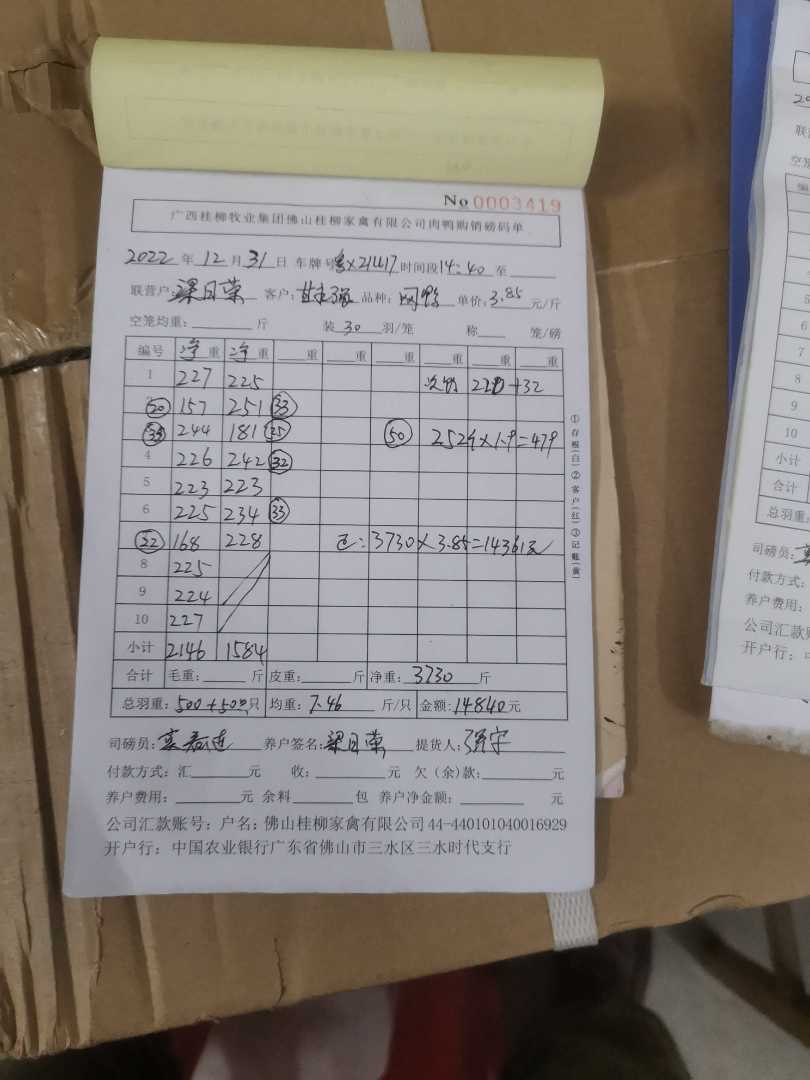 No 0003419
广西桂柳牧业集团佛山桂柳家禽有限公司肉鸭购销磅码单
2022 年 12 月 31 日 车牌号 X21417 时间段 14:40 至
联营户: 梁日荣 客户: 甘 强 品种: 单价: 3.85 元/斤
空笼均重: 斤 装 30 羽/笼 称 笼/磅
编号 净重 净重 重 重 重 重 重 重
1 227 225 次鸭 220+32
20 157 251 33
35 244 181 25 50 252斤×1.9=479
4 226 242 32
5 223 223
6 225 234 33
22 168 228 正:3730×3.85=14361元
8 225
9 224
10 227
小计 2146 1584
合计 毛重: 斤 皮重: 斤 净重: 3730 斤
总羽重: 500+50只 均重: 7.46 斤/只 金额: 14840元
司磅员: 养户签名: 梁日荣 提货人:
付款方式:汇 元 收: 元 欠(余)款: 元
养户费用: 元 余料 包 养户净金额: 元
公司汇款账号:户名:佛山桂柳家禽有限公司 44-440101040016929
开户行:中国农业银行广东省佛山市三水区三水时代支行
①存根(白)②客户(红)③记账(黄)
20
联
空笼
编
5
6
7
8
9
10
小计
合计
总羽重:
司磅员:
付款方式:
养户费用:
公司汇款
开户行:中